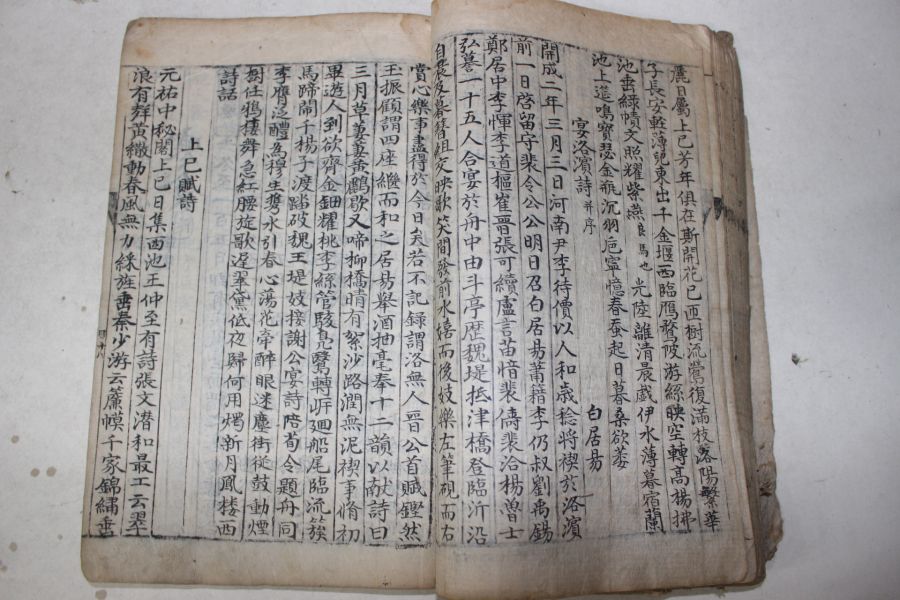 麗日屬上巳芳年俱在斯開花已匝樹流鶯復滿枝落陽繁華
子長安輕薄兒東出千金堰西臨鴈鶩陂游絲映空轉高楊拂
池垂綠幘文照耀紫燕良馬也光陸離清晨戲伊水薄暮宿蘭
池上遥鳴寶瑟金瓶沉羽巵寧憶春蚕起日暮桑欲萎
宴洛濱詩 并序 白居易
開成二年三月三日河南尹李待價以人和歲稔將禊於洛濱
前一日啓留守裴令公公明日召白居易蕭籍李仍叔劉禹錫
鄭居中李惲李道樞崔晉張可續盧言苗愔裴儔裴洽楊曾士
弘一十五人合宴於舟中由斗亭歷魏堤抵津橋登臨沂沿
自晨及暮簪組交映歌笑間發前水嬉而後妓樂左筆硯而右
賞心樂事盡得於今日矣若不記録謂洛無人晉公首賦鏗然
玉振顧謂四座継而和之居易舉酒抽毫奉十二韻以献詩曰
三月草萋萋黃鸝歇又啼柳橋晴有絮沙路潤無泥禊事脩初
畢遊人到欲齊金鈿耀桃李絲管駭鳧鷖轉岍廻船尾臨流簇
馬蹄鬧千楊子渡踏破魏王堤妓接謝公宴詩陪荀令題舟同
李膺泛醴為穆生携水引春心蕩花牽醉眼迷塵街從鼓動煙
樹任鴉棲舞急紅腰旋歌遲翠黛低夜歸何用燭新月鳳樓西
詩話
上巳賦詩
元祐中秘閣上巳日集西池王仲至有詩張文潛和最工云翠
浪有聲黄繖動春風無力綵旌垂秦少游云簾幙千家錦繡垂